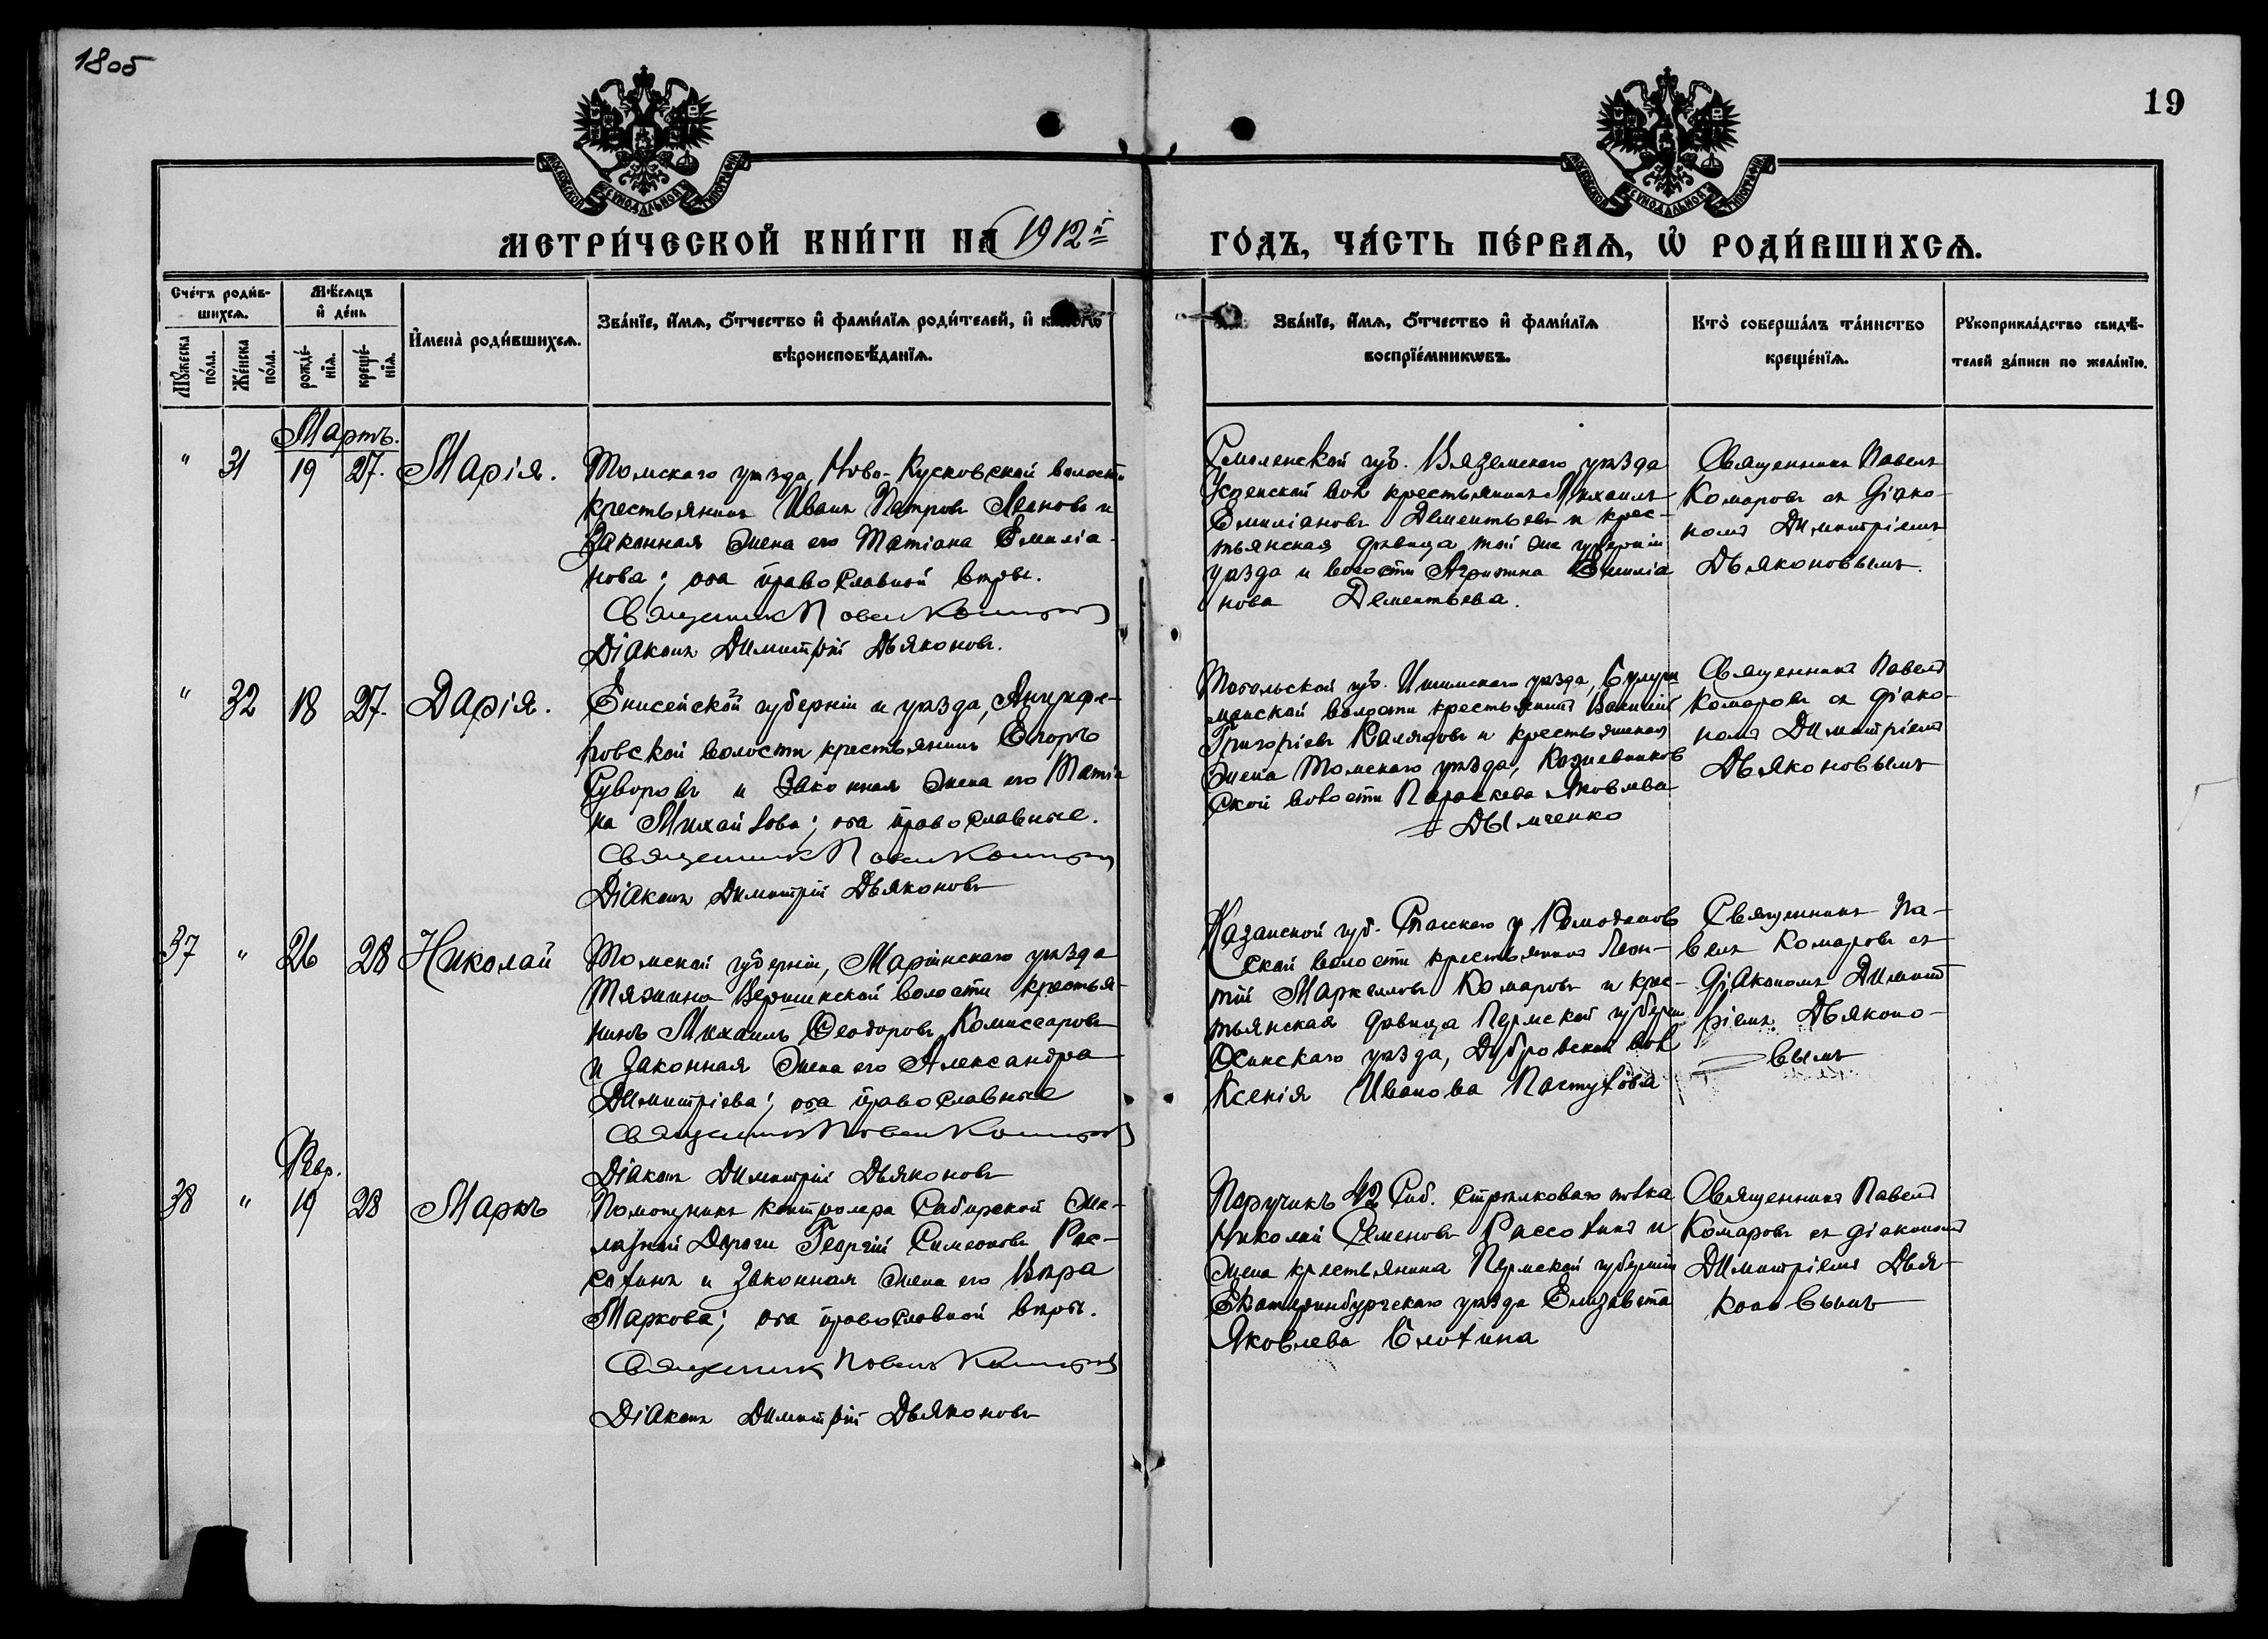 1805
19
МОСКОВСКОЙ СѴНОДАЛЬНОЙ ТИПОГРАФІИ
МОСКОВСКОЙ СѴНОДАЛЬНОЙ ТИПОГРАФІИ
МЕТРИ́ЧЕСКОЙ КНИ́ГИ НА 1912й ГО́ДЪ, ЧА́СТЬ ПЕ́РВАѦ, Ѡ҆ РОДИ́ВШИХСѦ.
Сче́тъ роди́в-
шихсѧ.
Мѣ́сѧцъ
и҆ де́нь
Мꙋ́жеска
по́ла.
Же́нска
по́ла.
рожде́-
нїѧ.
креще́-
нїѧ.
И҆мена̀ роди́вшихсѧ.
Зва́нїе, и҆́мѧ, ѻ҆́тчество и҆ фами́лїѧ роди́телей, и҆
вѣроисповѣ́данїѧ.
Зва́нїе, и҆́мѧ, ѻ҆́тчество и҆ фами́лїѧ
воспрїе́мникѡвъ.
Кто̀ соверша́лъ та́инство
креще́нїѧ.
Рꙋкоприкла́дство свидѣ́-
телей за́писи по жела́нїю.
Мартъ.
" 31 19 27. Марія.
Томскаго уѣзда, Ново-Кусковской волости
крестьянинъ Иванъ Петровъ Леоновъ и
Законная жена его Татіана Емиліа-
нова; оба православной вѣры.
Священникъ Павелъ Комаровъ
Діаконъ Димитрій Дьяконовъ.
Смоленской губ. Вяземскаго уѣзда
Успенской вол крестьянинъ Михаилъ
Емиліановъ Дементьевъ и крес-
тьянская дѣвица той же губерніи
уѣзда и волости Емиліа
нова Дементьева.
Священникъ Павелъ
Комаровъ съ діако-
номъ Димитріемъ
Дьяконовымъ.
" 32 18 27. Дарія.
Енисейской губерніи и уѣзда, Анцифе-
ровской волости крестьянинъ Егоръ
Суворовъ и Законная жена его Татіа
на Михайлова; оба православные.
Священникъ Павелъ Комаровъ
Діаконъ Димитрій Дьяконовъ
Тобольской губ. Ишимскаго уѣзда,
волости крестьянинъ Василій
Григорьевъ и крестьянская
жена Томскаго уѣзда, Кожевников
ской волости Параскева Яковлева
Дымченко
Священникъ Павелъ
Комаровъ съ діако-
номъ Димитріемъ
Дьяконовымъ
37 " 26 28 Николай
Томской губерніи, Маріинскаго уѣзда
Тяжино-Вершинской волости крестья-
нинъ Михаилъ Ѳеодоровъ Комиссаровъ
и Законная жена его Александра
Димитріева; оба православные
Священникъ Павелъ Комаровъ
Діаконъ Димитрій Дьяконовъ
Казанской губ. Спасскаго у Ромодановъ
ской волости крестьянинъ Леон-
тій Маркелловъ Комаровъ и крес-
тьянская дѣвица Пермской губерніи
Осинскаго уѣзда, Дубровской вол
Ксенія Иванова Пастухова
Священникъ Па-
велъ Комаровъ съ
Діакономъ Димит
ріемъ Дьяконо-
вымъ
Февр.
38 " 19 28 Маркъ
Помощникъ контролера Сибирской Же-
лезной Дороги Георгій Симеоновъ Рас-
сохинъ и Законная жена его Вѣра
Маркова; оба православной вѣры.
Священникъ Павелъ Комаровъ
Діаконъ Димитрій Дьяконовъ
Поручикъ 42 Сиб. Стрѣлковаго полка
Николай Семеновъ Рассохинъ и
жена крестьянина Пермской губерніи
Екатеринбургскаго уѣзда Елизавета
Яковлева Блохина
Священникъ Павелъ
Комаровъ съ діакономъ
Димитріемъ Дья-
коновымъ